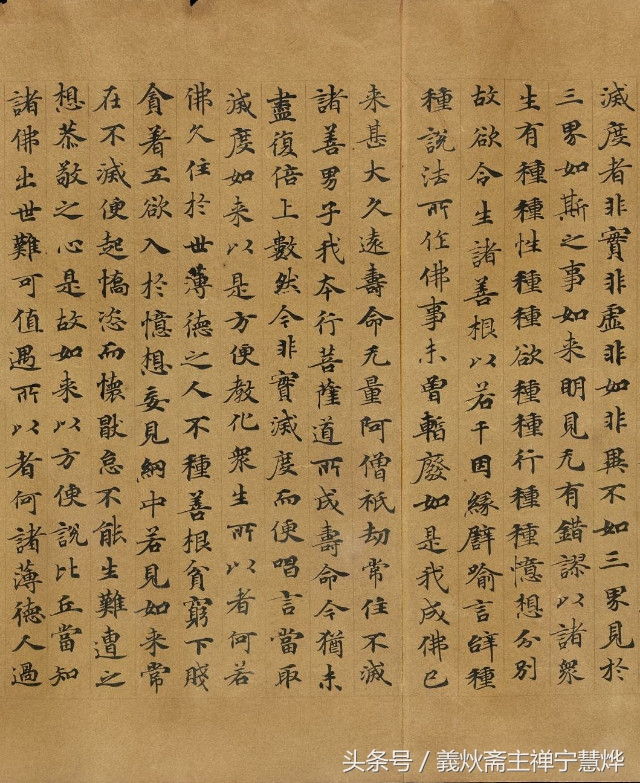 滅度者非實非虛非如非異不如三界見於
三界如斯之事如来明見无有錯謬以諸衆
生有種種性種種欲種種行種種憶想分別
故欲令生諸善根以若干因緣譬喻言辝種
種說法所作佛事未曾暫廢如是我成佛已
来甚大久遠壽命无量阿僧祇劫常住不滅
諸善男子我本行菩薩道所成壽命今猶未
盡復倍上數然今非實滅度而便唱言當取
滅度如来以是方便教化衆生所以者何若
佛久住於世薄德之人不種善根貧窮下賤
貪著五欲入於憶想妄見網中若見如来常
在不滅便起憍恣而懷猒怠不能生難遭之
想恭敬之心是故如来以方便說比丘當知
諸佛出世難可值遇所以者何諸薄德人過
头条号／義炏斋主禅宁慧烨